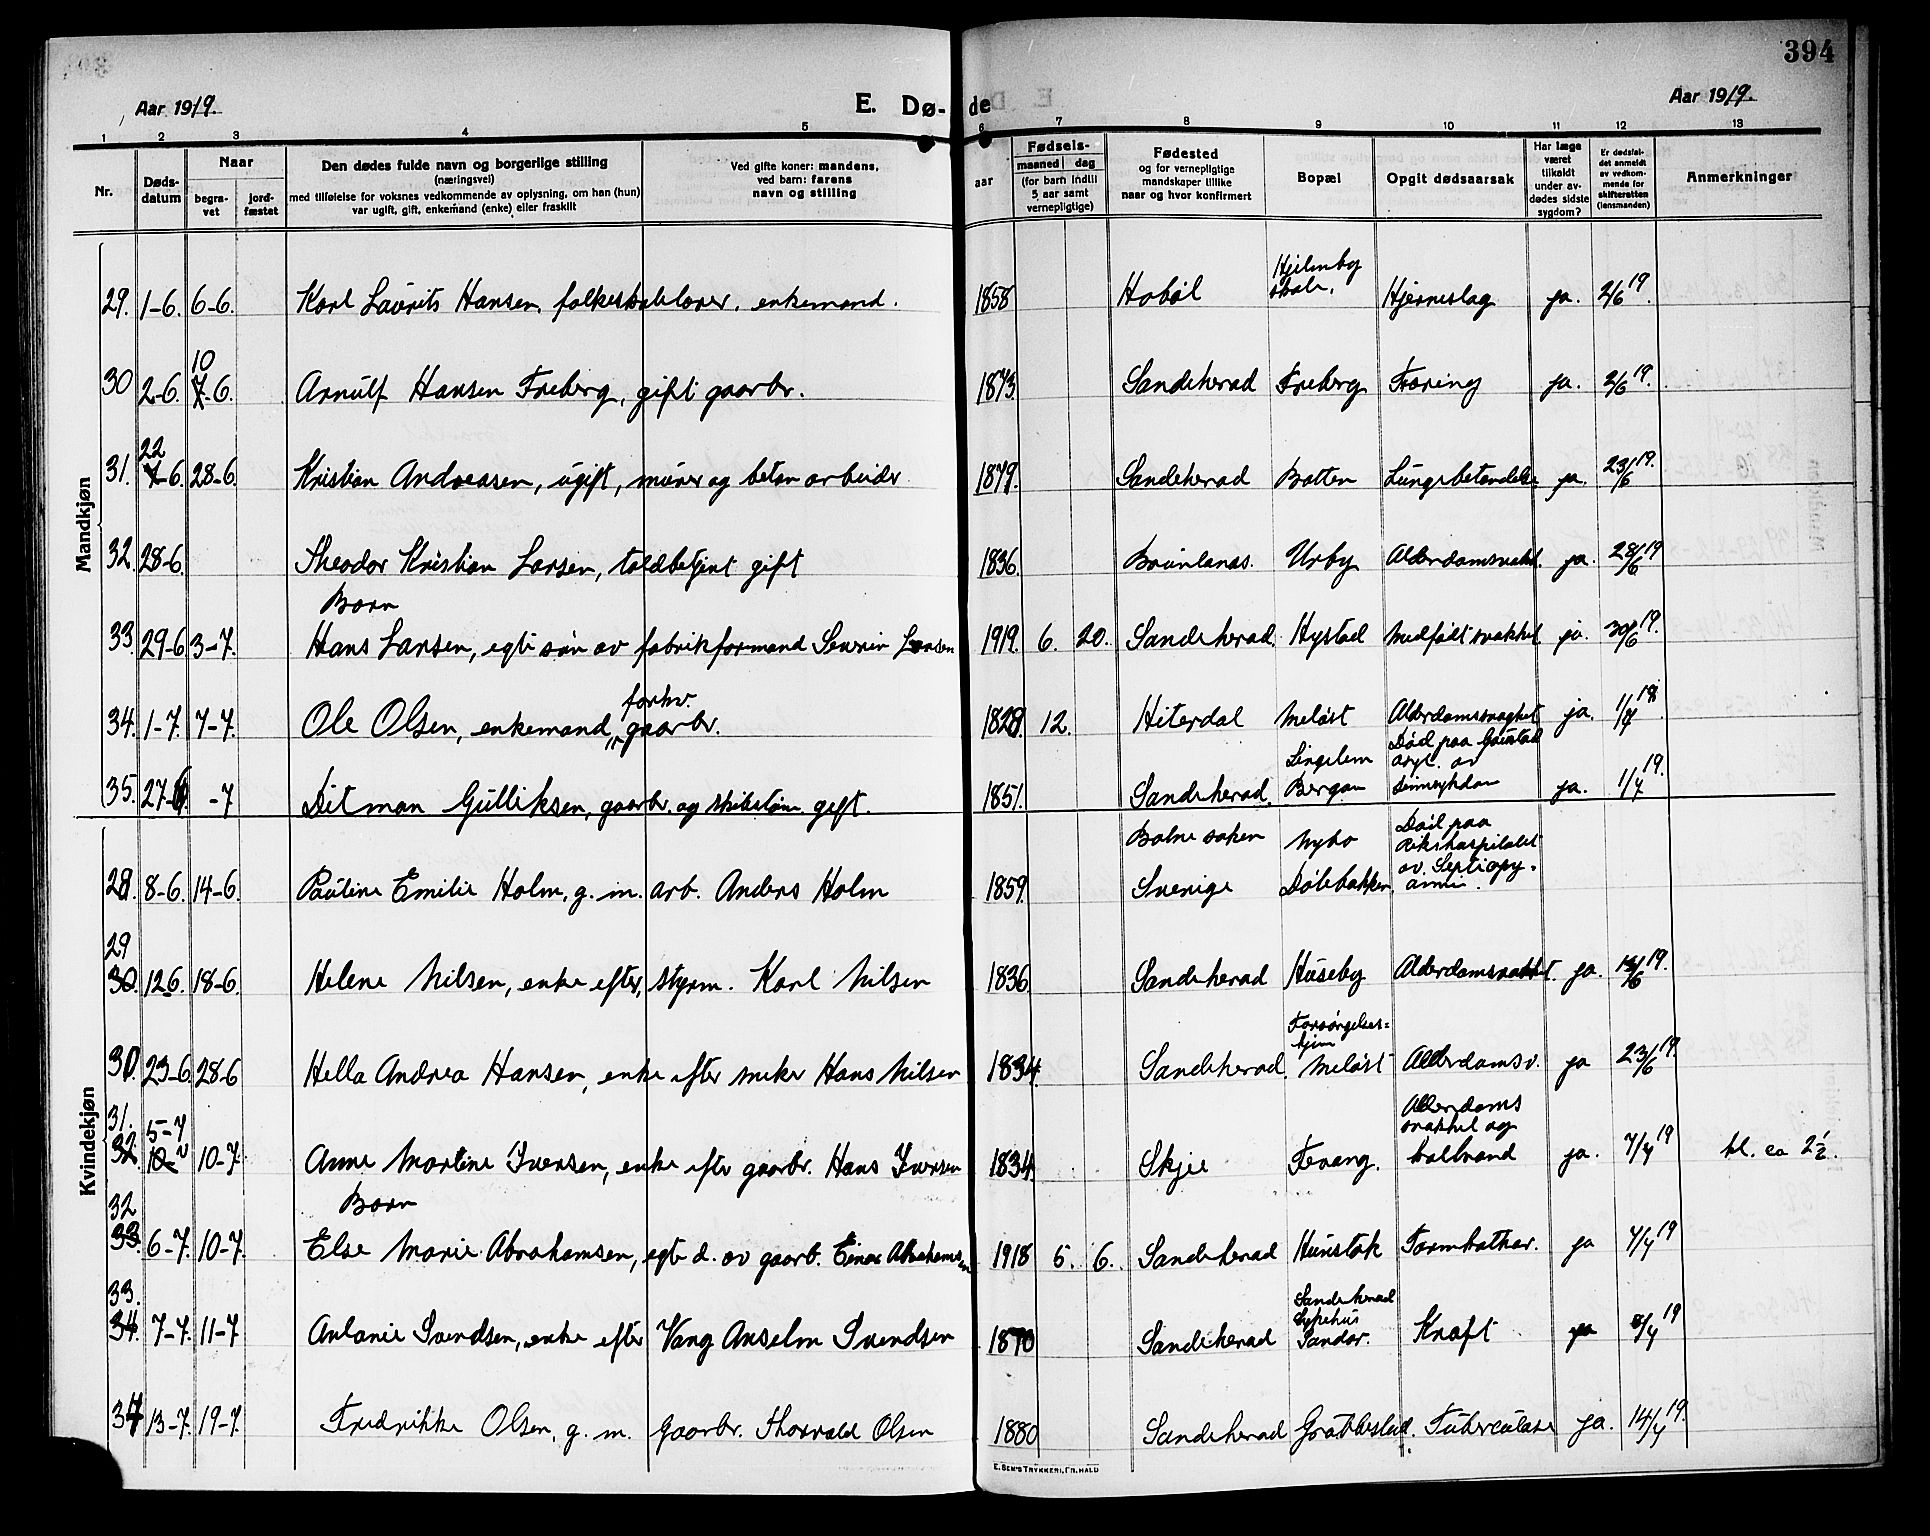 394
Aar 1919.
E. Dø-
de
Aar 1919.
1 2 3 4 5 6 7 8 9 10 11 12 13
Nr.
Døds-
datum
Naar
begra-
vet
jord-
fæstet
Den dødes fulde navn og borgerlige stilling
(næringsvei)
med tilføielse for voksnes vedkommende av oplysning, om han (hun)
var ugift, gift, enkemand (enke) eller fraskilt
Ved gifte koner: mandens,
ved barn: farens
navn og stilling
aar
Fødsels-
maaned dag
(for barn indtil
5 aar samt
vernepligtige)
Fødested
og for vernepligtige
mandskaper tillike
naar og hvor konfirmert
Bopæl
Opgit dødsaarsak
Har læge
været
tilkaldt
under av-
dødes sidste
sygdom?
Er dødsfal-
det anmeldt
av vedkom-
mende for
skifteretten
(lensmanden)
Anmerkninger
Mandkjøn
29. 1-6. 6-6. Karl Laurits Hansen, folkeskolelærer, enkemand. 1858 Hobøl Hjelmby skole. Hjerneslag ja. 2/6 19.
30 2-6. 10 7-6. Arnulf Hansen Freberg, gift gaarbr. 1873. Sandeherad Freberg Tæring ja. 2/6 19.
31. 22 7-6. 28-6. Kristian Andreasen, ugift, murer og beton arbeider 1879. Sandeherad Botten Lungebetændelse ja. 23/6 19.
32. 28-6. Theodor Kristian Larsen, toldbetjent gift 1836. Brunlanes. Urby Alderdomsvakh. ja. 28/6 19
Barn
33. 29-6 3-7. Hans Larsen, egte søn av fabrikformand Severin Larsen 1919. 6. 20. Sandeherad. Hystad Medfødt svakhet ja. 30/6 19.
34. 1-7. 7-7. Ole Olsen, enkemand, forhv. gaarbr. 1828 12. Hiterdal Meløst Alderdomssvaghet ja. 1/7 19.
35. 27-6 -7 Ditman Gulliksen, gaarbr. og skibstøm. gift. 1851. Sandeherad. Lingelem Bergan Død paa Gaustad asyl. av sinnsykdom ja. 1/7 19.
Kvindekjøn
28. 8-6. 14-6. Pauline Emilie Holm, g. m. arb. Anders Holm 1859. Bolne soken Sverige Nybo Dølebakken. Død paa Rikshospitalet av Septicopy-ämie.
29 30. 12-6. 18-6. Helene Nilsen, enke efter, styrm. Karl Nilsen 1836. Sandeherad Huseby Alderdomsvakhet. ja. 13/6 19.
30. 23-6. 28-6 Hella Andrea Hansen, enke efter smeker Hans Nilsen 1834. Sandeherad. Forsørgelses-hjem Meløst Alderdomsv. ja 23/6 19.
31. 32. 5-7 10-7. Anne Martine Iversen, enke efter gaarbr. Hans Iversen 1834. Skjee Fevang. Alderdoms svakhet og koldbrand ja. 7/7 19 kl. ca 2 1/2.
Barn
32 33. 6-7. 10-7. Else Marie Abrahamsen, egte d. av gaarb. Einar Abrahamsen 1918 5. 6. Sandeherad Hunstok Tarmkathar. ja 7/7 19
33. 34. 7-7. 11-7 Antonie Svendsen, enke efter Vang Anselm Svendsen 1870 Sandeherad Sandeherad Sykehus Sandar. Kræft ja 8/7 19
34 13-7. 19-7. Fredrikke Olsen, g. m. Gaarbr. Thorvald Olsen 1880 Sandeherad Grotbestad. Tuberculose ja. 14/7 19.
E. SEM'S TRYKKERI, FR.HALD